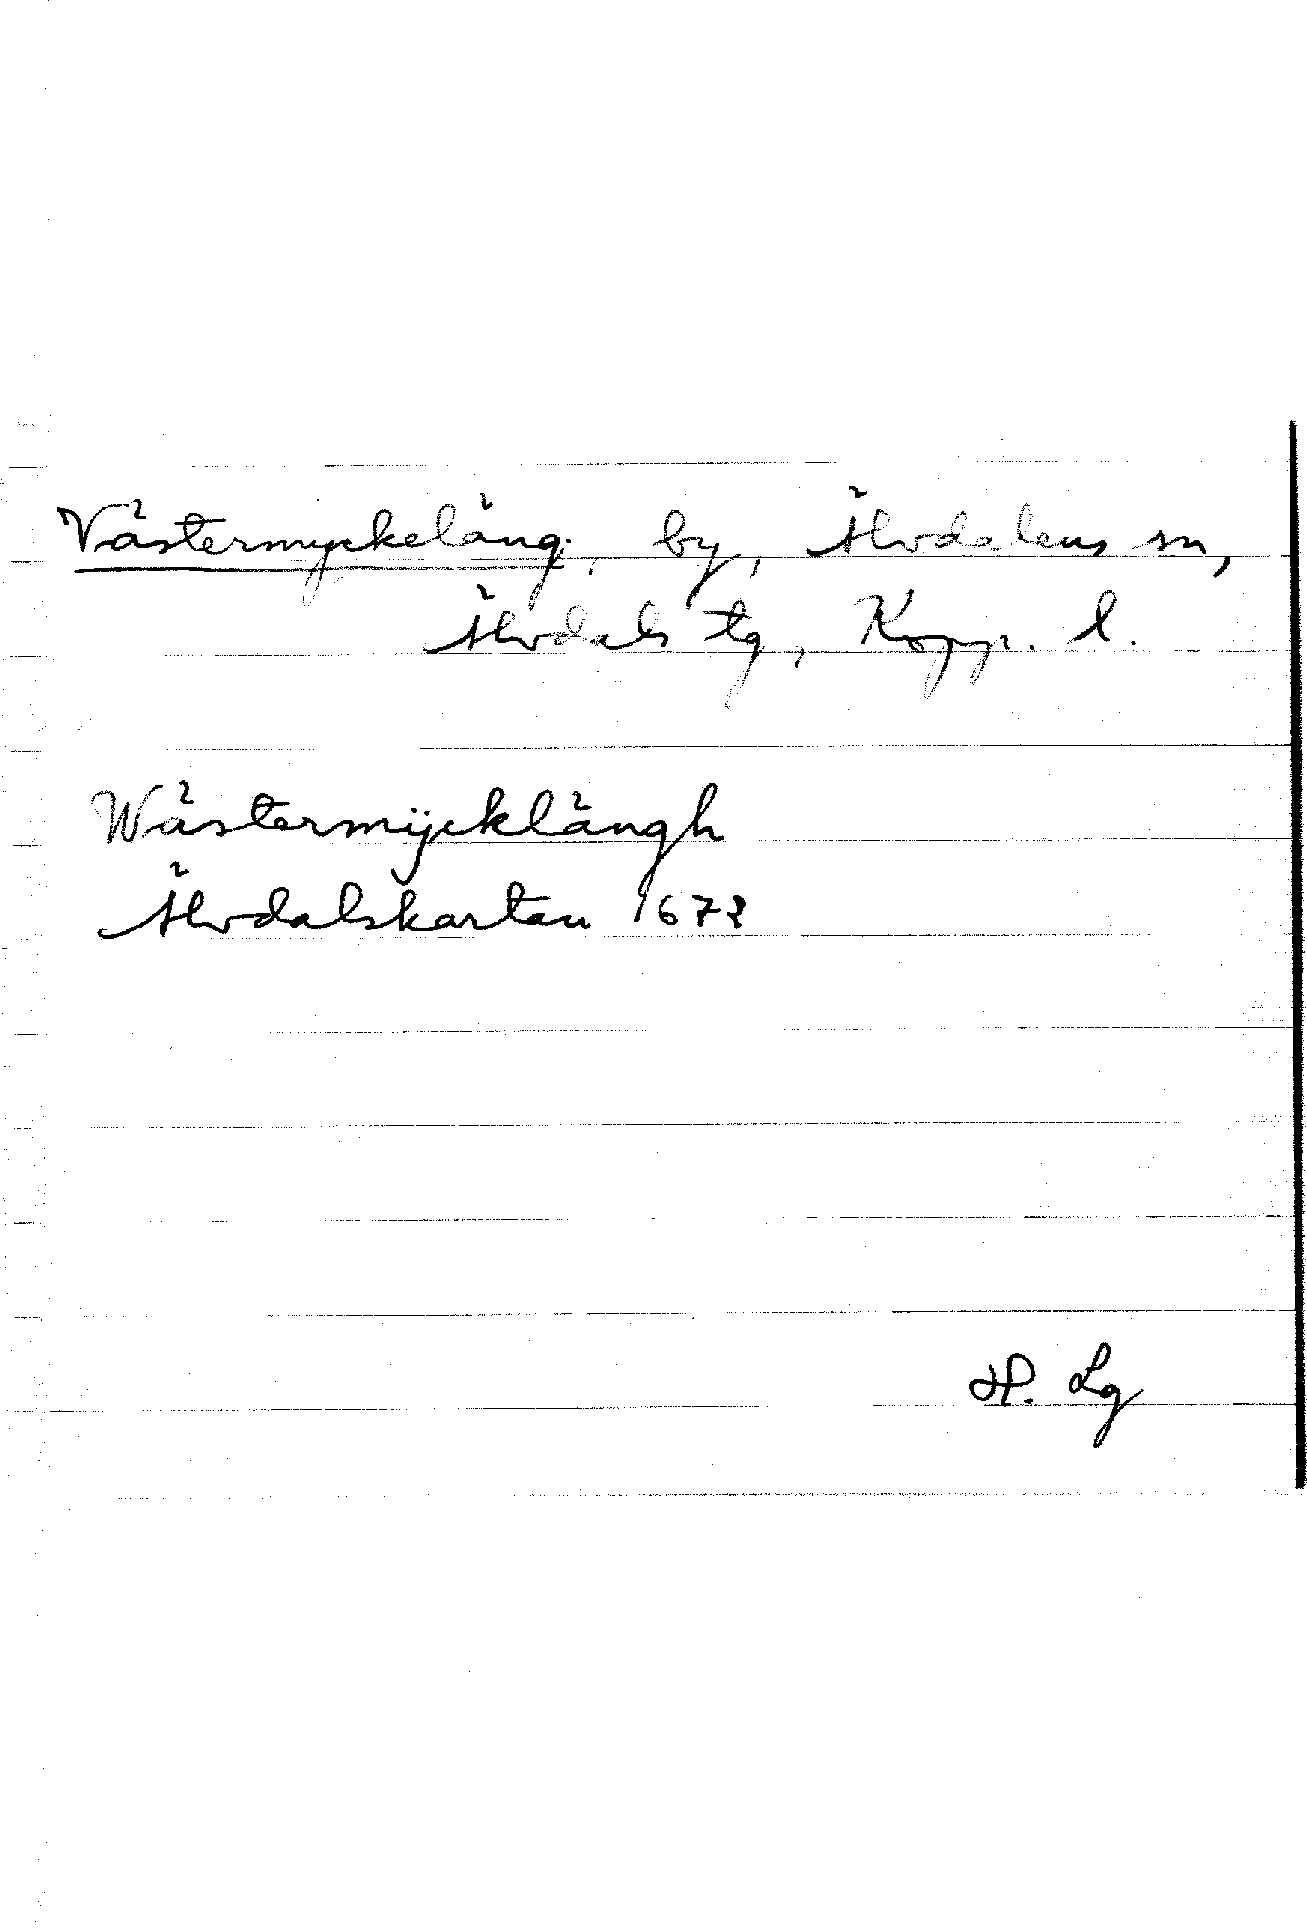 Västermyckeläng, by, Älvdalens sn,
Älvdals tg, Kopp. l.
Wästermÿcklängh
Älvdalskartan 1672
H. Lg